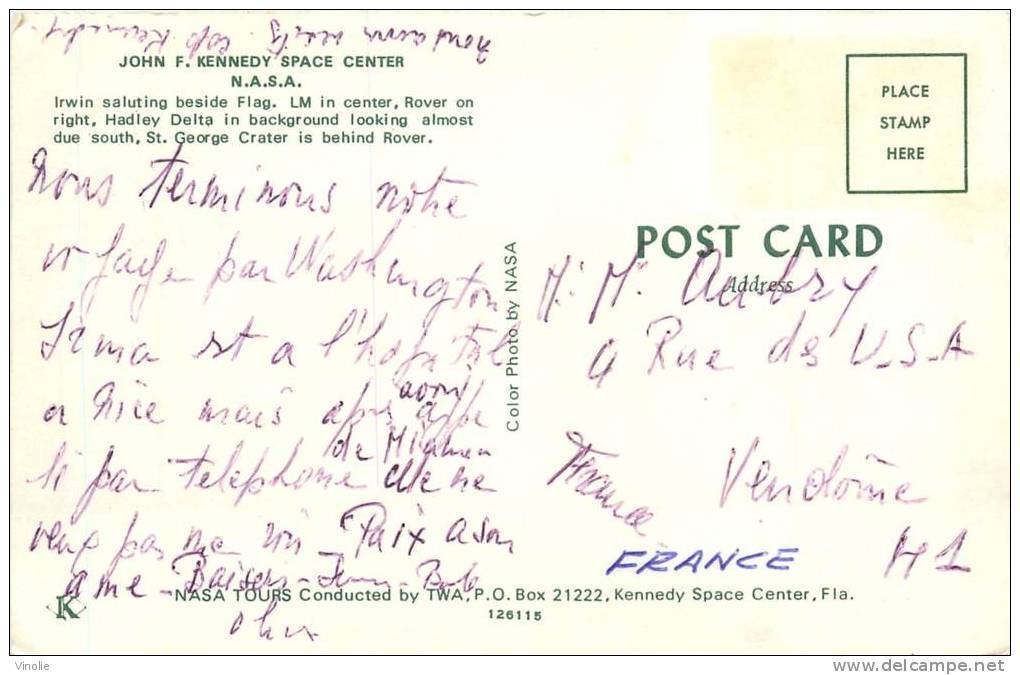 nous avons visité Cap Kennedy.
JOHN F. KENNEDY SPACE CENTER
N.A.S.A.
Irwin saluting beside Flag. LM in center, Rover on
right, Hadley Delta in background looking almost
due south, St. George Crater is behind Rover.
Nous terminons notre
voyage par Washington
Irma est a l'hopital
a Nice mais apres avoir appe
lé par telephone de Miami elle ne
veut pas me voir "Paix a son
ame - Baisers - Bob
PLACE
STAMP
HERE
POST CARD
Address
M. Mme Aubry
9 Rue des U-S-A
Vendôme
France
FRANCE 41
Color Photo by NASA
K
NASA TOURS Conducted by TWA, P.O. Box 21222, Kennedy Space Center, Fla.
126115
Vinolie
delcampe.net